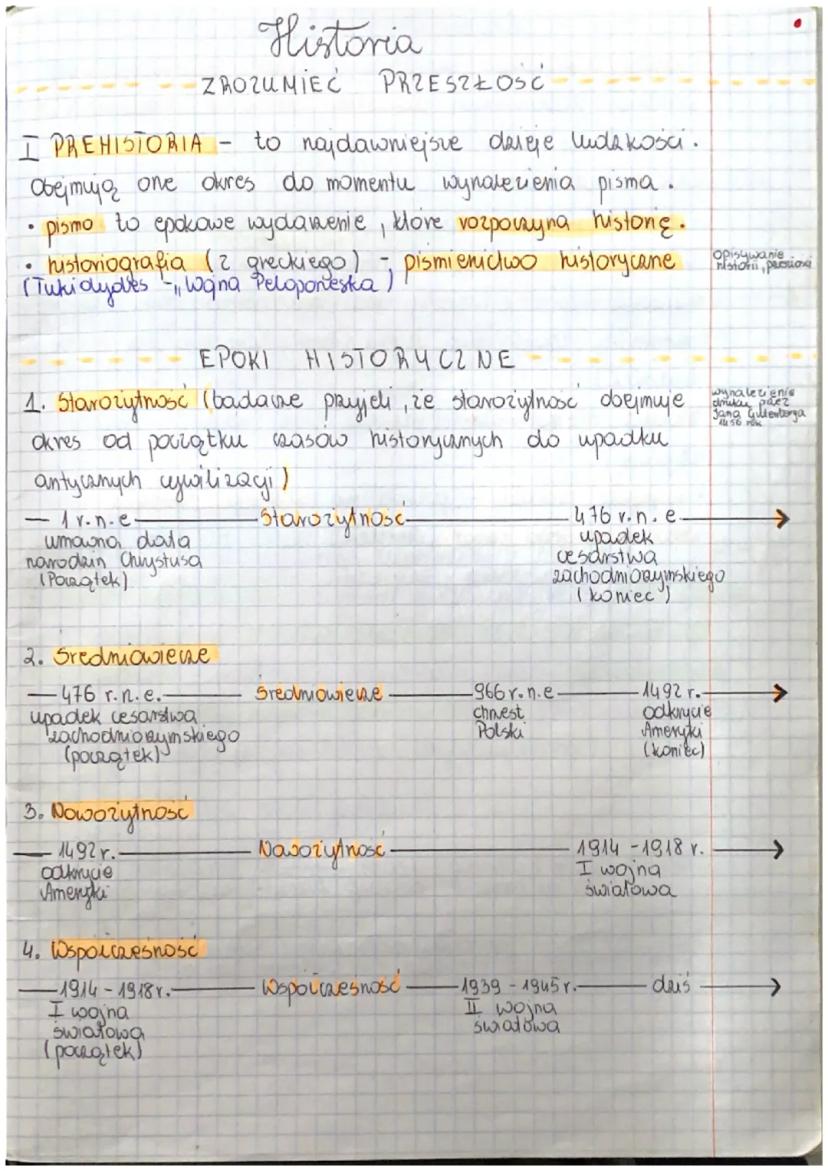 Historia
ZROZUMIEĆ PRZESZŁOŚĆ
I PREHISTORIA - to najdawniejsze dzieje ludzkości.
Obejmują one okres do momentu wynalezienia pisma.
• pismo to epokowe wydarzenie, które rozpoczyna historię.
• historiografia (z greckiego) - piśmiennictwo historyczne
opisywanie
historii, pisana
(Tukidydes - „Wojna Peloponeska)
EPOKI HISTORYCZNE
1. Starożytność (badacze przyjeli, że starożytność obejmuje
wynalezienie
druku przez
Jana Gutenberga
1456 rok
okres od początku czasów historycznych do upadku
antycznych cywilizacji)
1 r.n.e Starożytność 476 r.n.e.
umowna data
narodzin Chrystusa
(Początek)
upadek
cesarstwa
zachodniorzymskiego
(koniec)
2. Średniowiecze
476 r.n.e. Średniowiecze 966 r.n.e 1492 r.
upadek cesarstwa
zachodniorzymskiego
(początek)
chrzest
Polski
odkrycie
Ameryki
(koniec)
3. Nowożytność
1492 r. Nowożytność 1914 - 1918 r.
odkrycie
Ameryki
I wojna
światowa
4. Współczesność
1914 - 1918 r. Współczesność 1939 - 1945 r. dziś
I wojna
światowa
(początek)
II wojna
światowa